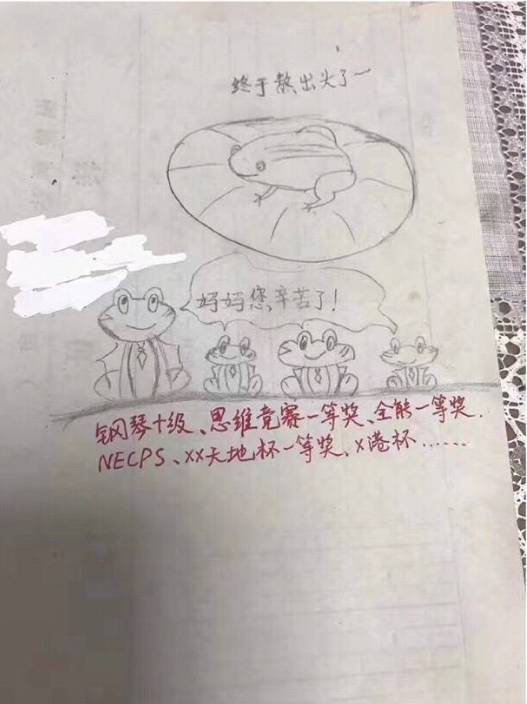 终于熬出头了一
妈妈您辛苦了!
钢琴十级、思维竞赛一等奖、全能一等奖、
NECPS、XX天地杯一等奖、X港杯……